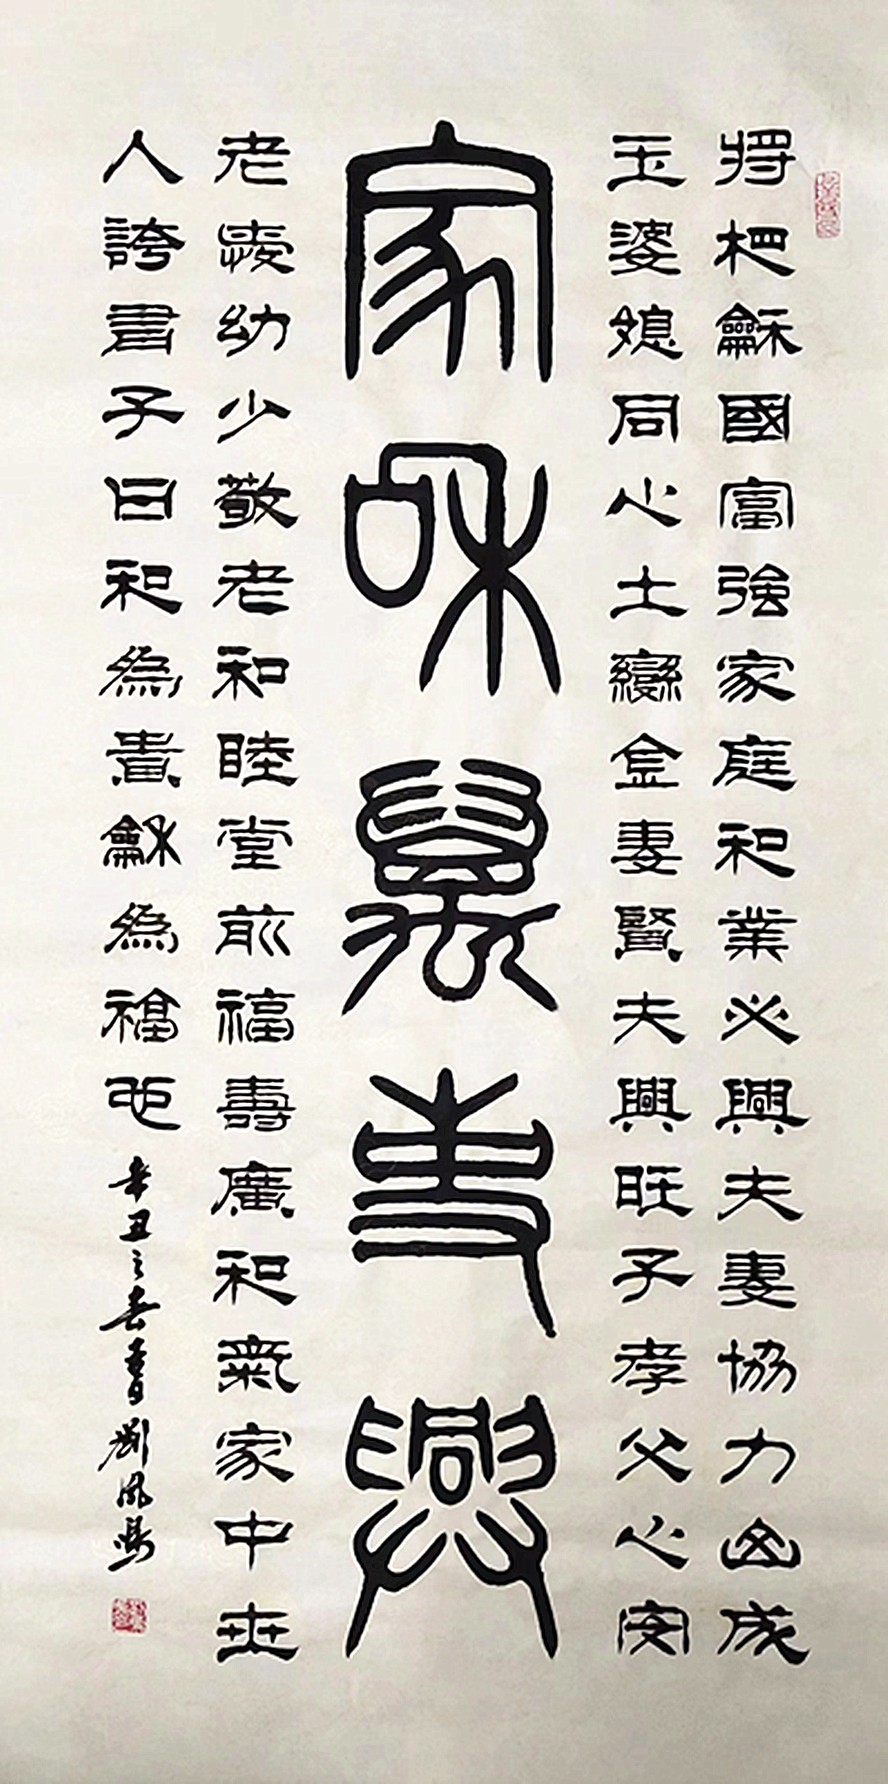 将相龢國富強家庭和業必興夫妻協力山成
玉婆媳同心土變金妻賢夫興旺子孝父心安
家和萬事興
老愛幼少敬老和睦堂前福壽廣和氣家中世
人誇書子曰和為貴龢為福也 辛丑之春書 劉鳳